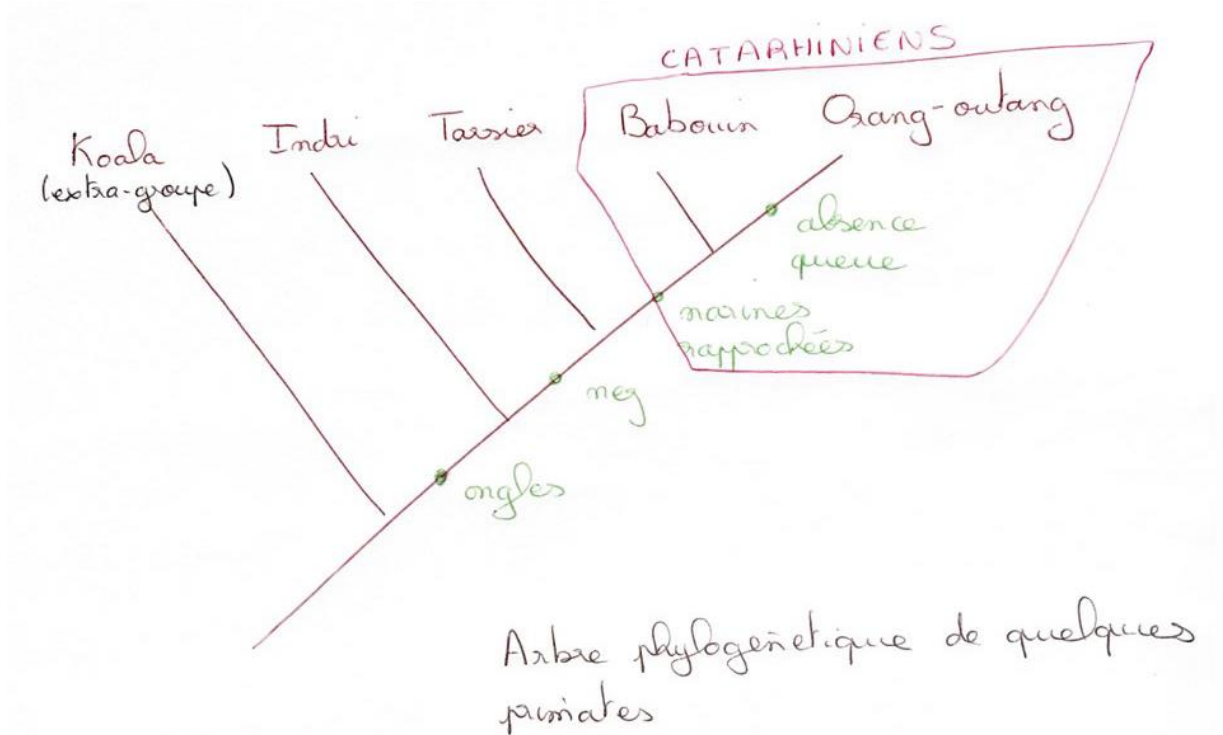 CATARHINIENS
Koala
(extra-groupe)
Indri
Tarsier
Babouin
Orang-outang
absence
queue
narines
rapprochées
nez
ongles
Arbre phylogénétique de quelques
primates